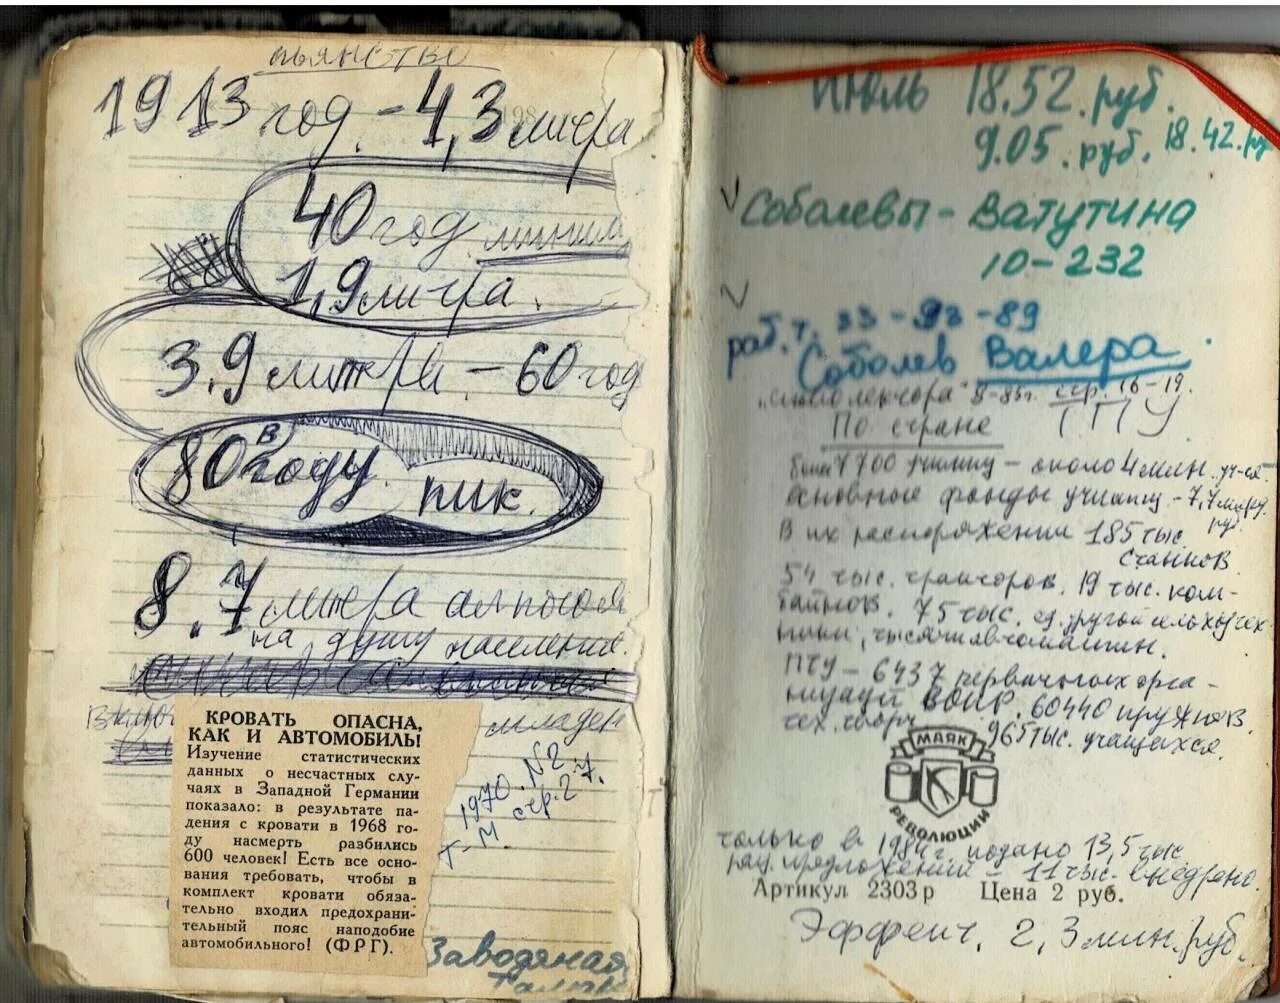 пьянство
1913 год - 4,3 литра
40 год
1,9 литра.
3.9 литра - 60 год
80 в году пик.
8.7 литра
на душу населения.
КРОВАТЬ ОПАСНА,
КАК И АВТОМОБИЛЬ!
Изучение статистических
данных о несчастных слу-
чаях в Западной Германии
показало: в результате па-
дения с кровати в 1968 го-
ду насмерть разбились
600 человек! Есть все осно-
вания требовать, чтобы в
комплект кровати обяза-
тельно входил предохрани-
тельный пояс наподобие
автомобильного! (ФРГ).
1970. N2.
стр. 27.
Т-М.
Заводская
июль 18.52. руб.
9.05. руб. 18.42.
Соболевы - Ватутина
10-232
раб. т. 33-93-89
Соболев Валера.
"Слово лектора" 8-85г. стр. 16-19.
По стране ГПУ
7700 училищ - около 4 млн. уч-ся.
основные фонды училищ - 7,7 млрд.
руб.
В их распоряжении 185 тыс.
станков.
54 тыс. тракторов, 19 тыс. ком-
байнов. 75 тыс. ед. другой сельхозтех
ники, тысячи автомашин.
ПТУ - 6437 первичных орга-
низаций ВОИР. 60440 кружков
тех. творч. 965 тыс. учащихся.
МАЯК
РЕВОЛЮЦИИ
только в 1984г. подано 13,5 тыс
рац. предложений - 11 тыс. внедрено.
Артикул 2303р Цена 2 руб.
Эффект. 2,3 млн. руб.